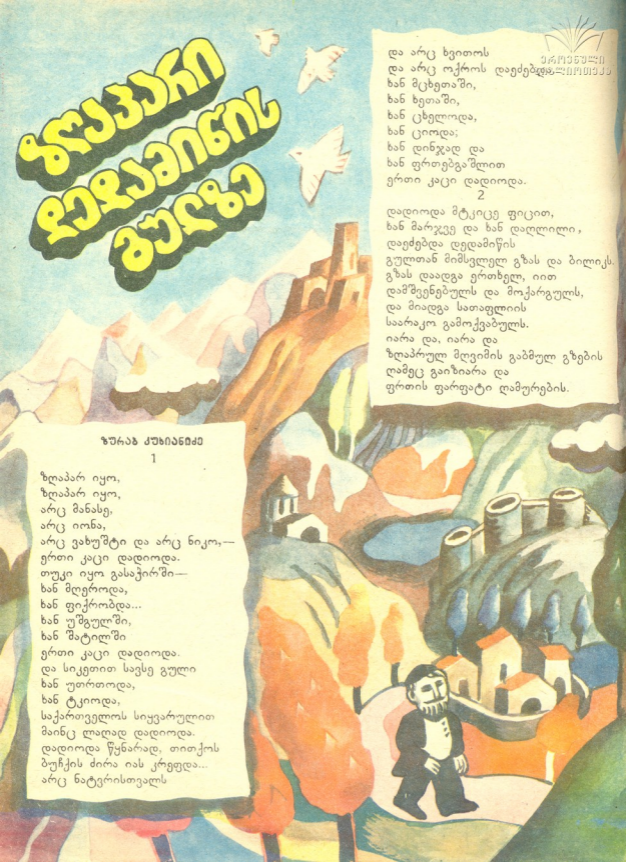 ზღაპარი
დედამიწის
გულზე
ზურაბ კუხიანიძე
1
ზღაპარ იყო,
ზღაპარ იყო,
არც მანასე,
არც იონა,
არც ვახუშტი და არც ნიკო,—
ერთი კაცი დადიოდა.
თუკი იყო გასაჭირში—
ხან მღეროდა,
ხან ფიქრობდა...
ხან უშგულში,
ხან შატილში
ერთი კაცი დადიოდა.
და სიკეთით სავსე გული
ხან უთრთოდა,
ხან ტკიოდა,
საქართველოს სიყვარულით
მაინც ლაღად დადიოდა.
დადიოდა წყნარად, თითქოს
ბუჩქის ძირა იას კრეფდა...
არც ნატვრისთვალს
და არც ხვითოს
და არც ოქროს დაეძებდა
ხან მცხეთაში,
ხან ხეთაში,
ხან ცხელოდა,
ხან ციოდა;
ხან დინჯად და
ხან ფრთებგაშლით
ერთი კაცი დადიოდა.
2
დადიოდა მტკიცე ფიცით,
ხან მარჯვე და ხან დაღლილი,
დაეძებდა დედამიწის
გულთან მიმსვლელ გზას და ბილიკს.
გზას დაადგა ერთხელ, იით
დამშვენებულს და მოქარგულს,
და მიადგა სათაფლიის
საარაკო გამოქვაბულს.
იარა და, იარა და
ზღაპრულ მღვიმის გაბმულ გზების
ღამეც გაიზიარა და
ფრთის ფარფატი ღამურების.
ეროვნული
ბიბლიოთეკა